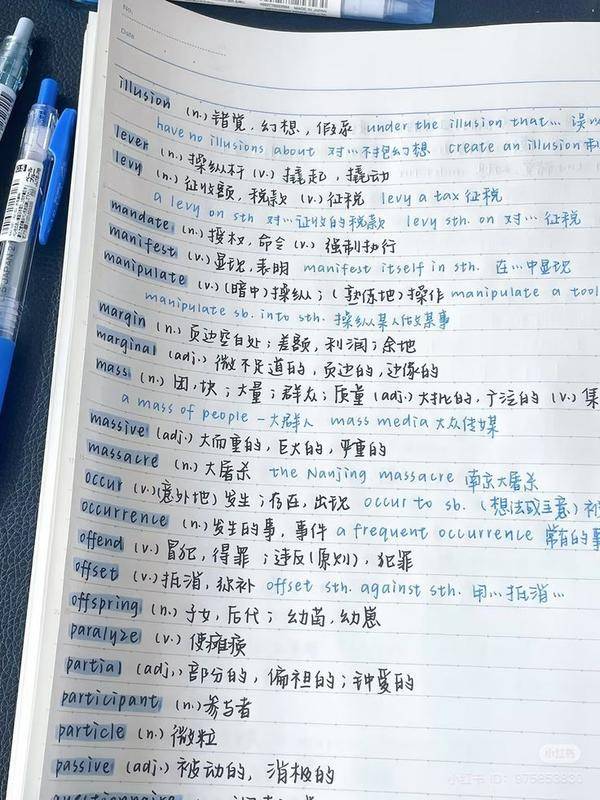 No.
Date
illusion (n.) 错觉, 幻想, 假象 under the illusion that... 误
have no illusions about 对...不抱幻想 create an illusion
lever (n.) 操纵杆 (v.) 撬起, 撬动
levy (n.) 征收额, 税款 (v.) 征税 levy a tax 征税
a levy on sth 对...证收的税款 levy sth. on 对... 征税
mandate (n.) 授权, 命令 (v.) 强制执行
manifest (v.) 显现, 表明 manifest itself in sth. 在...中显现
manipulate (v.) (暗中) 操纵; (熟练地) 操作 manipulate a tool
manipulate sb. into sth. 操纵某人做某事
margin (n.) 页边空白处; 差额, 利润; 余地
marginal (adj.) 微不足道的, 页边的, 边缘的
mass (n.) 团, 块; 大量; 群众; 质量 (adj.) 大批的, 广泛的 (v.) 集
a mass of people 一大群人 mass media 大众传媒
massive (adj.) 大而重的, 巨大的, 严重的
massacre (n.) 大屠杀 the Nanjing massacre 南京大屠杀
occur (v.) (意外地) 发生; 存在, 出现 occur to sb. (想法或主意) 被
occurrence (n.) 发生的事, 事件 a frequent occurrence 常有的事
offend (v.) 冒犯, 得罪; 违反(原则), 犯罪
offset (v.) 抵消, 弥补 offset sth. against sth. 用...抵消...
offspring (n.) 子女, 后代; 幼苗, 幼崽
paralyze (v.) 使瘫痪
partial (adj.) 部分的, 偏袒的; 钟爱的
participant (n.) 参与者
particle (n.) 微粒
passive (adj.) 被动的, 消极的
questionnaire
小红书
小红书 ID: 975853830